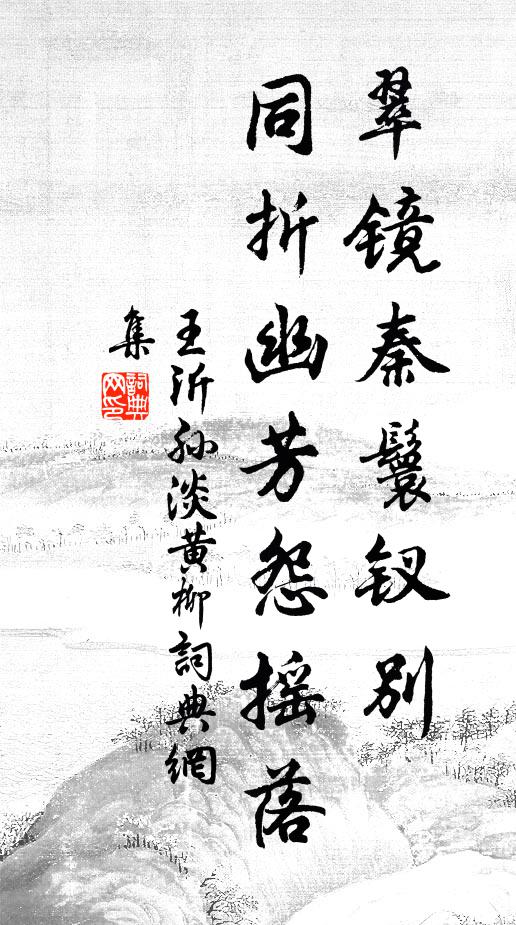 翠镜秦鬟钗别
同折幽芳怨摇落
王沂孙淡黄柳詞典網
集
詞典网印